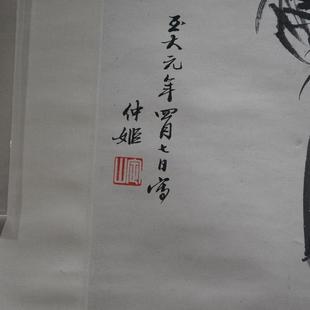 至大元年四月七日写
仲姬